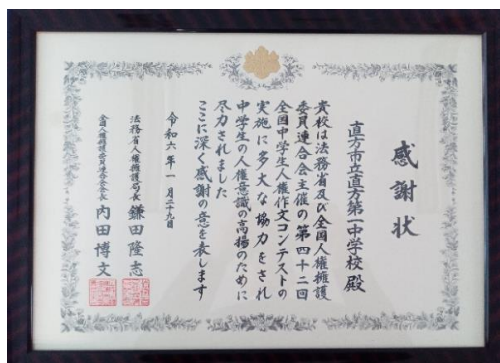 感謝状
直方市立直方第一中学校 殿
貴校は法務省及び全国人権擁護
委員連合会主催の第四十二回
全国中学生人権作文コンテストの
実施に多大な協力をされ
中学生の人権意識の高揚のために
尽力されました
ここに深く感謝の意を表します
令和六年一月二十九日
法務省人権擁護局長 鎌田隆志
全国人権擁護委員連合会会長 内田博文